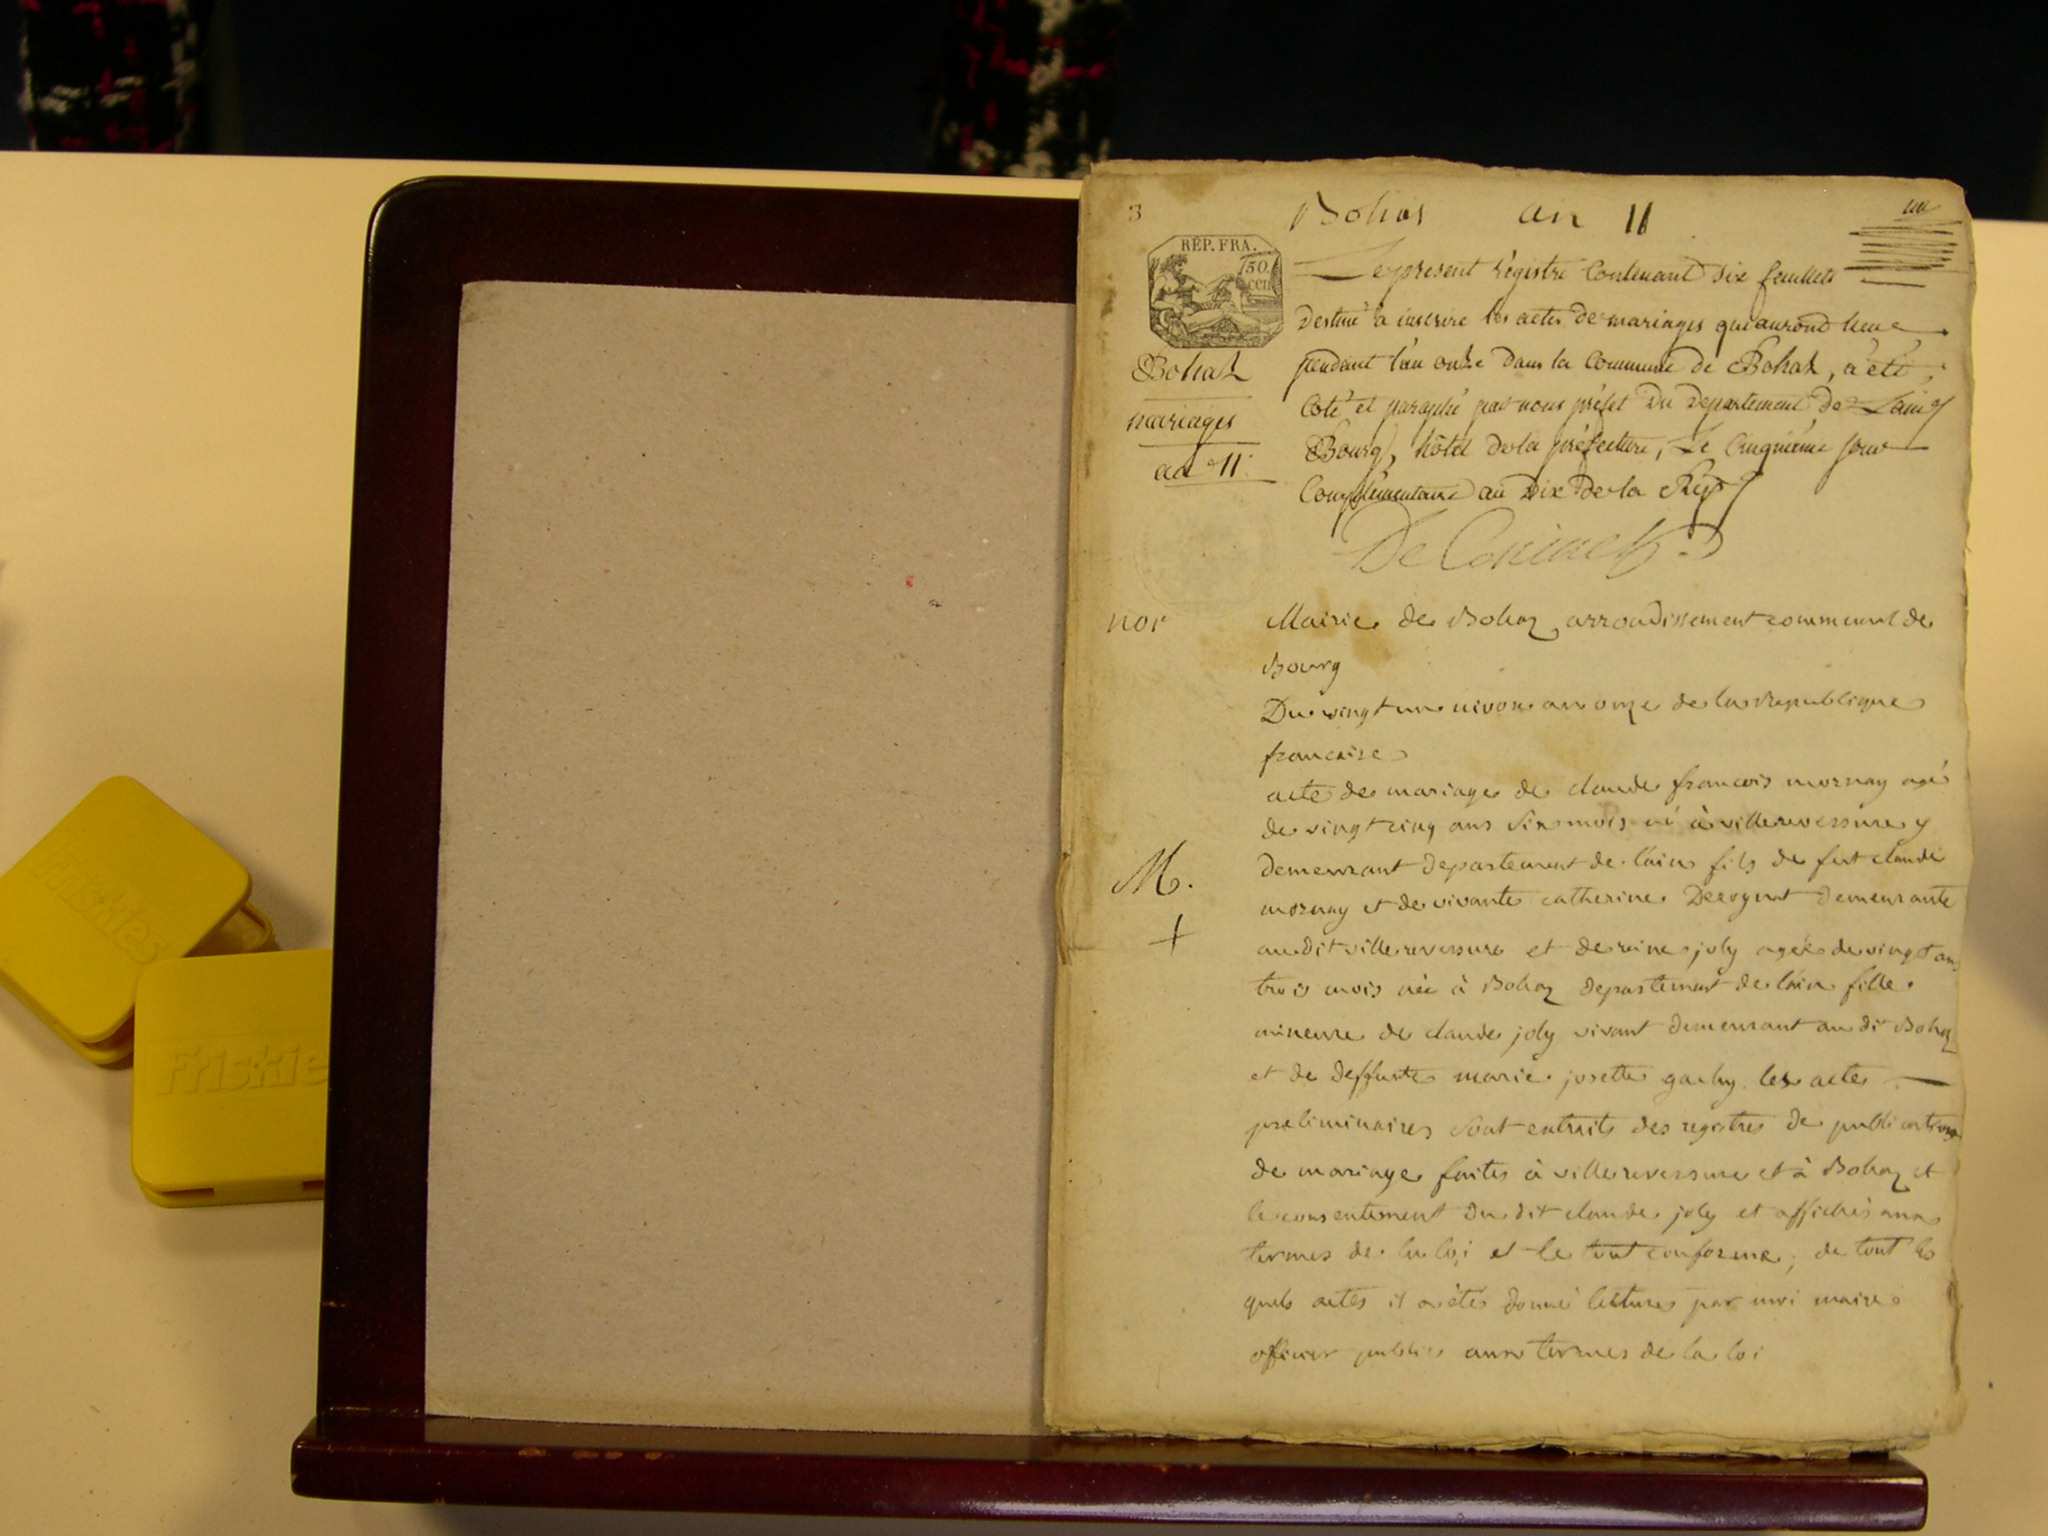 3
Bohas an 11
un
REP. FRA.
50
CEN
Le present régistre Contenant dix feuillets
Destiné à inscrire les actes de mariages qui auront lieu
pendant l'an onze dans la Commune de Bohaz, a été
Coté et paraphé par nous préfet Du Departement De L'ain
Bourg, hôtel de la préfecture, Le Cinquième jour
Complémentaire an Dix de la Rép
De Coninck
Bohaz
mariages
an 11
nor
Mairie de Bohaz arrondissement communal de
Bourg
Du vingt un nivose an onze de la Republique
francaise
acte de mariage de claude francois mornay agé
de vingt cinq ans six mois né à villereversure y
demeurant departement de lain fils de fut claude
mornay et de vivante catherine demeurante
M.
+
au dit villereversure et de reine joly agée de vingt ans
trois mois née à Bohaz departement de lain fille
mineure de claude joly vivant demeurant au dit Bohaz
et de deffunte marie josette gachy les actes
preliminaires sont extraits des registres de publications
de mariage faites à villereversure et à Bohaz et
le consentement du dit claude joly et affichés aux
termes de la loi et le tout conforme, de tout les
quels actes il a étés donné lecture par moi maire
officier public aux termes de la loi
Friskies
Friskie